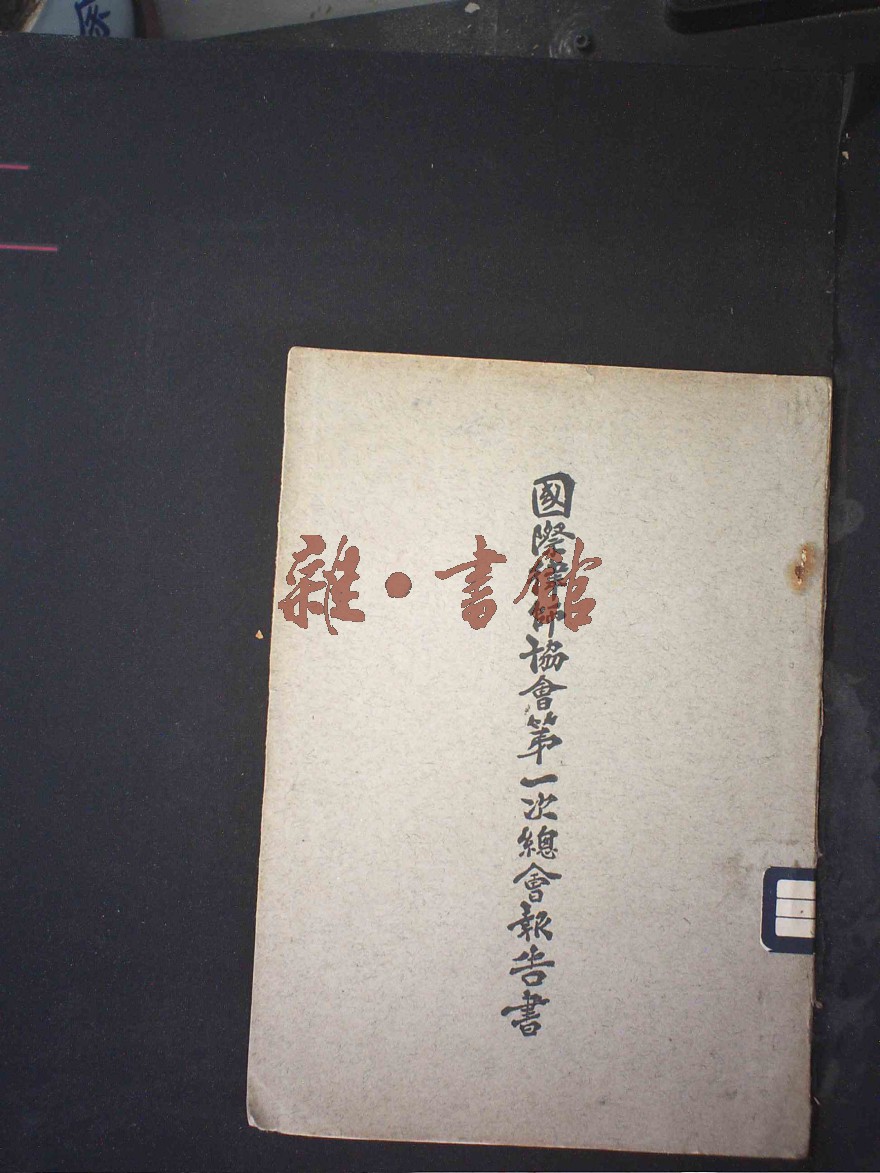 國際律師協會第一次總會報告書
雜·書館